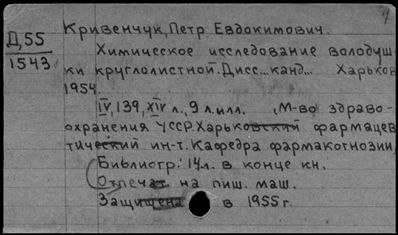 Кривенчук, Петр Евдокимович.
Д55
1543
Химическое исследование володуш-
ки круглолистной. Дисс... канд... Харьков
1954.
IV, 139, XIV л., 9 л. илл. (М-во здраво-
охранения УССР. Харьковский фармацев
тический ин-т. Кафедра фармакогнозии)
Библиогр.: 14л. в конце кн.
Отпечат на пиш. маш.
Защищена в 1955 г.